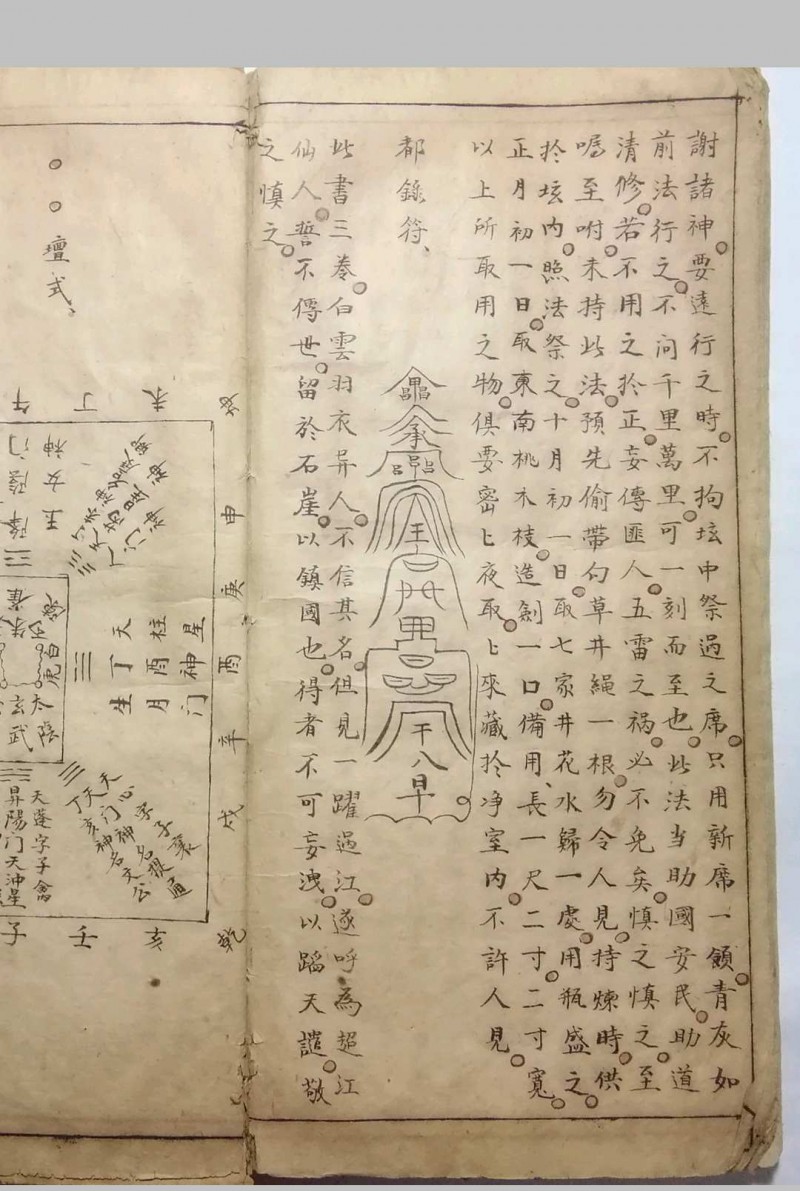 謝諸神要遠行之時不拘坛中祭過之席只用新席一領青灰如
前法行之不問千里萬里可一刻而至也此法当助國安民助道
清修若不用之於正妄傳匪人五雷之禍必不免矣慎之慎之至
嘱至咐未持此法預先偷帶勾草井繩一根勿令人見持煉時供
扵坛内照法祭之十月初一日取七家井花水歸一處用瓶盛之
正月初一日取東南桃木枝造劍一口備用長一尺二寸二寸寬
以上所取用之物俱要密〻夜取〻來藏扵净室内不許人見
都錄符
此書三卷白雲羽衣异人不信其名但見一躍過江遂呼為超江
仙人誓不傳世留於石崖以鎮國也得者不可妄洩以蹈天譴敬
之慎之
○○壇式
坤
申
庚
酉
辛
戌
乾
未
丁
午
亥
壬
子
星神门
柱酉月
天丁生
白虎
太陰
玄武
天蓬字子禽
昇陽门天沖星